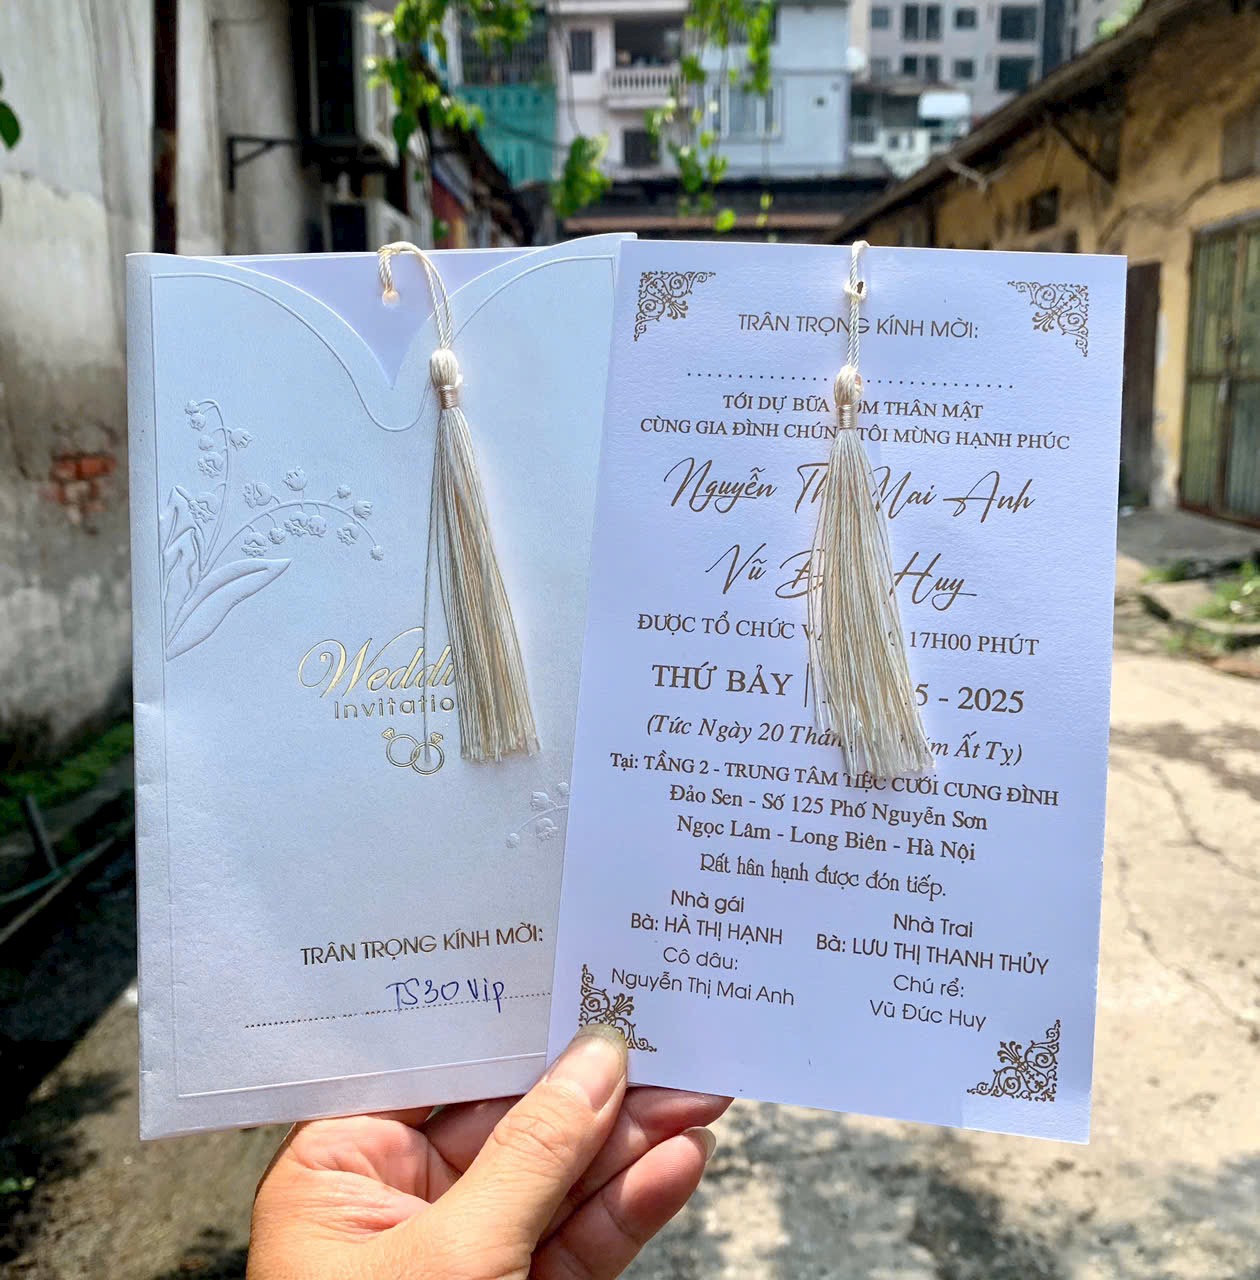 Weddi
Invitatio
TRÂN TRỌNG KÍNH MỜI:
TS30 Vip
TRÂN TRỌNG KÍNH MỜI:
TỚI DỰ BỮA CƠM THÂN MẬT
CÙNG GIA ĐÌNH CHÚNG TÔI MỪNG HẠNH PHÚC
Nguyễn Thị Mai Anh
Vũ Đức Huy
ĐƯỢC TỔ CHỨC 17H00 PHÚT
THỨ BẢY | 5 - 2025
(Tức Ngày 20 Tháng Năm Ất Tỵ)
Tại: TẦNG 2 - TRUNG TÂM TIỆC CƯỚI CUNG ĐÌNH
Đảo Sen - Số 125 Phố Nguyễn Sơn
Ngọc Lâm - Long Biên - Hà Nội
Rất hân hạnh được đón tiếp.
Nhà gái
Bà: HÀ THỊ HẠNH
Cô dâu:
Nguyễn Thị Mai Anh
Nhà Trai
Bà: LƯU THỊ THANH THỦY
Chú rể:
Vũ Đức Huy